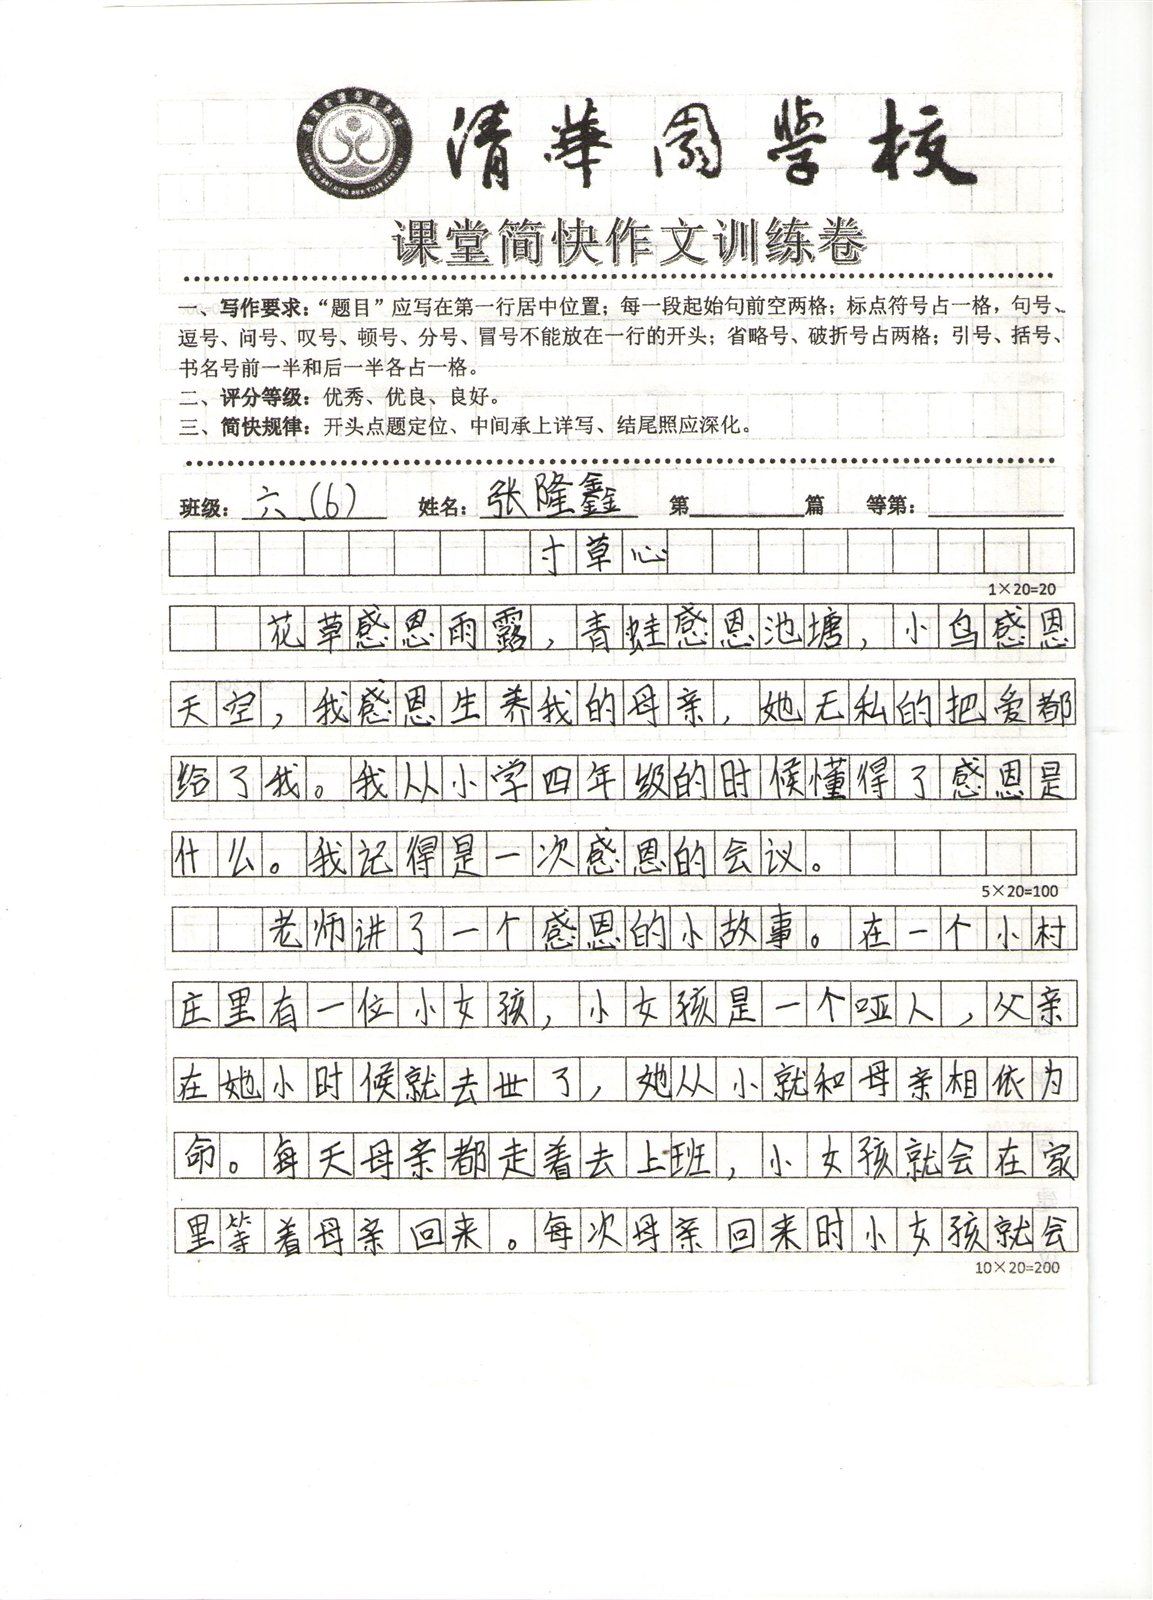 清華園學校
课堂简快作文训练卷
一、写作要求：“题目”应写在第一行居中位置；每一段起始句前空两格；标点符号占一格，句号、
逗号、问号、叹号、顿号、分号、冒号不能放在一行的开头；省略号、破折号占两格；引号、括号、
书名号前一半和后一半各占一格。
二、评分等级：优秀、优良、良好。
三、简快规律：开头点题定位、中间承上详写、结尾照应深化。
班级：六（6） 姓名：张隆鑫 第 篇 等第：
寸草心
1×20=20
花草感恩雨露，青蛙感恩池塘，小鸟感恩
天空，我感恩生养我的母亲，她无私的把爱都
给了我。我从小学四年级的时候懂得了感恩是
什么。我记得是一次感恩的会议。
5×20=100
老师讲了一个感恩的小故事。在一个小村
庄里有一位小女孩，小女孩是一个哑人，父亲
在她小时候就去世了，她从小就和母亲相依为
命。每天母亲都走着去上班，小女孩就会在家
里等着母亲回来。每次母亲回来时小女孩就会
10×20=200